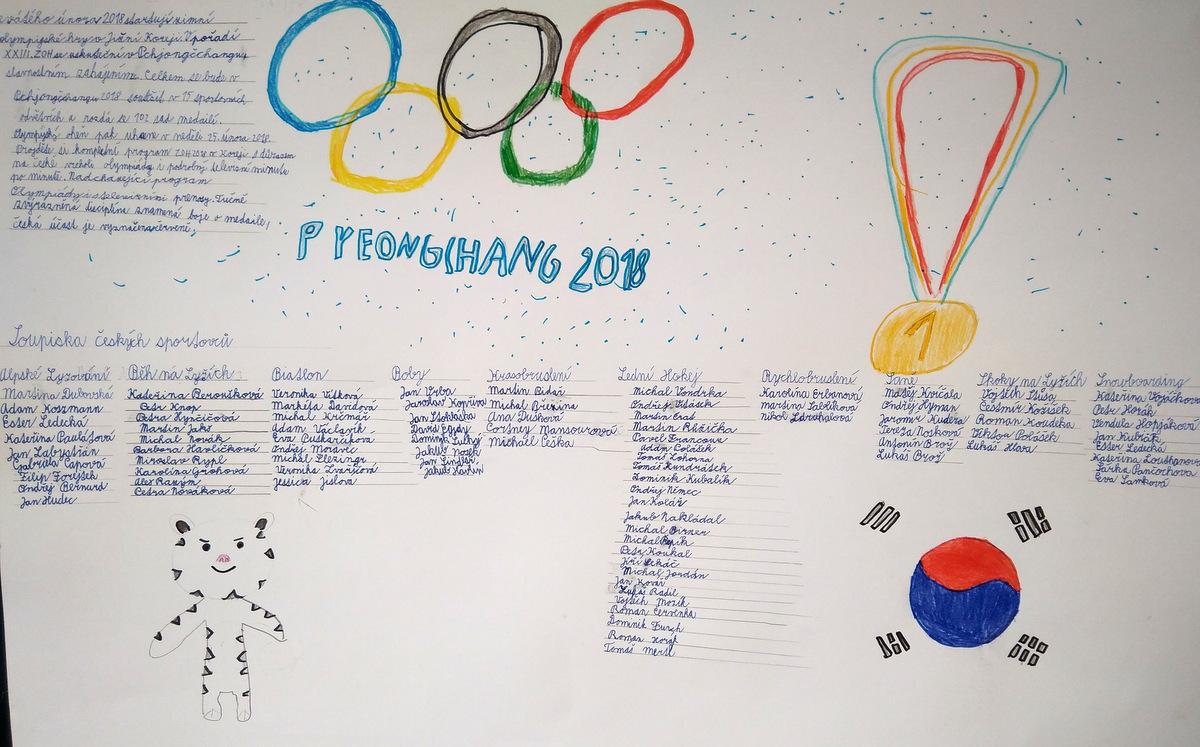 evátého února 2018 startují zimní
olympijské hry v Jižní Koreji. V pořadí
XXIII. ZOH se uskuteční v Pchjongčchangu,
slavnostním zahájením. Celkem se bude v
Pchjongčchangu 2018 soutěžit v 15 sportovních
odvětvích a rozdá se 102 sad medailí.
Olympijský oheň pak uhasne v neděli 25. února 2018.
Projděte si kompletní program ZOH 2018 v Koreji s důrazem
na české vrcholi olympiády i podrobný televizní minutu
po minutě. Nadcházející program
Olympiády i s televizními přenosy. Tučně
zvýrazněná disciplína znamená boje o medaile,
česká účast je vyznačena červeně.
PYEONGCHANG 2018
1
Soupiska českých sportovců
Alpské Lyžování
Martina Dubovská
Adam Kotzmann
Ester Ledecká
Kateřina Pauláťová
Jan Zabystřan
Gabriela Capová
Filip Forejtek
Ondřej Berndt
Jan Hudec
Běh na Lyžích
Kateřina Beroušková
Petr Knop
Petra Hynčicová
Martin Jakš
Michal Novák
Barbora Havlíčková
Miroslav Rypl
Karolína Grohová
Aleš Razým
Petra Nováková
Biatlon
Veronika Vítková
Markéta Davidová
Michal Krčmář
Adam Václavík
Eva Puskarčíková
Ondřej Moravec
Michal Šlesingr
Veronika Zvařičová
Jessica Jislova
Boby
Jan Vrba
Jaroslav Kopřiva
Jan Stokláska
David Egydy
Dominik Suchý
Jakub Nosek
Jan Šindelář
Jakub Havlín
Krasobruslení
Martin Bidař
Michal Březina
Ana Dušková
Cortney Mansourová
Michael Češka
Lední Hokej
Michal Vondrka
Ondřej Vitásek
Martin Erat
Martin Růžička
Pavel Francouz
Adam Polášek
Tomáš Zohorna
Tomáš Kundrátek
Dominik Kubalík
Ondřej Němec
Jan Kolář
Jakub Nakládal
Michal Birner
Michal Řepík
Petr Koukal
Jiří Sekáč
Michal Jordán
Jan Kovář
Lukáš Radil
Vojtěch Mozík
Roman Červenka
Dominik Furch
Roman Horák
Tomáš Mertl
Rychlobruslení
Karolína Erbanová
Martina Sáblíková
Nikol Zdráhalová
Sáně
Matěj Kvíčala
Ondřej Hyman
Jaromír Kudera
Tereza Nosková
Antonín Brož
Lukáš Brož
Skoky na Lyžích
Vojtěch Štursa
Čestmír Kožíšek
Roman Koudelka
Viktor Polášek
Lukáš Hlava
Snowboarding
Kateřina Vojáčková
Petr Horák
Vendula Hopjáková
Jan Kubičák
Ester Ledecká
Kateřina Louthanová
Šárka Pančochová
Eva Samková